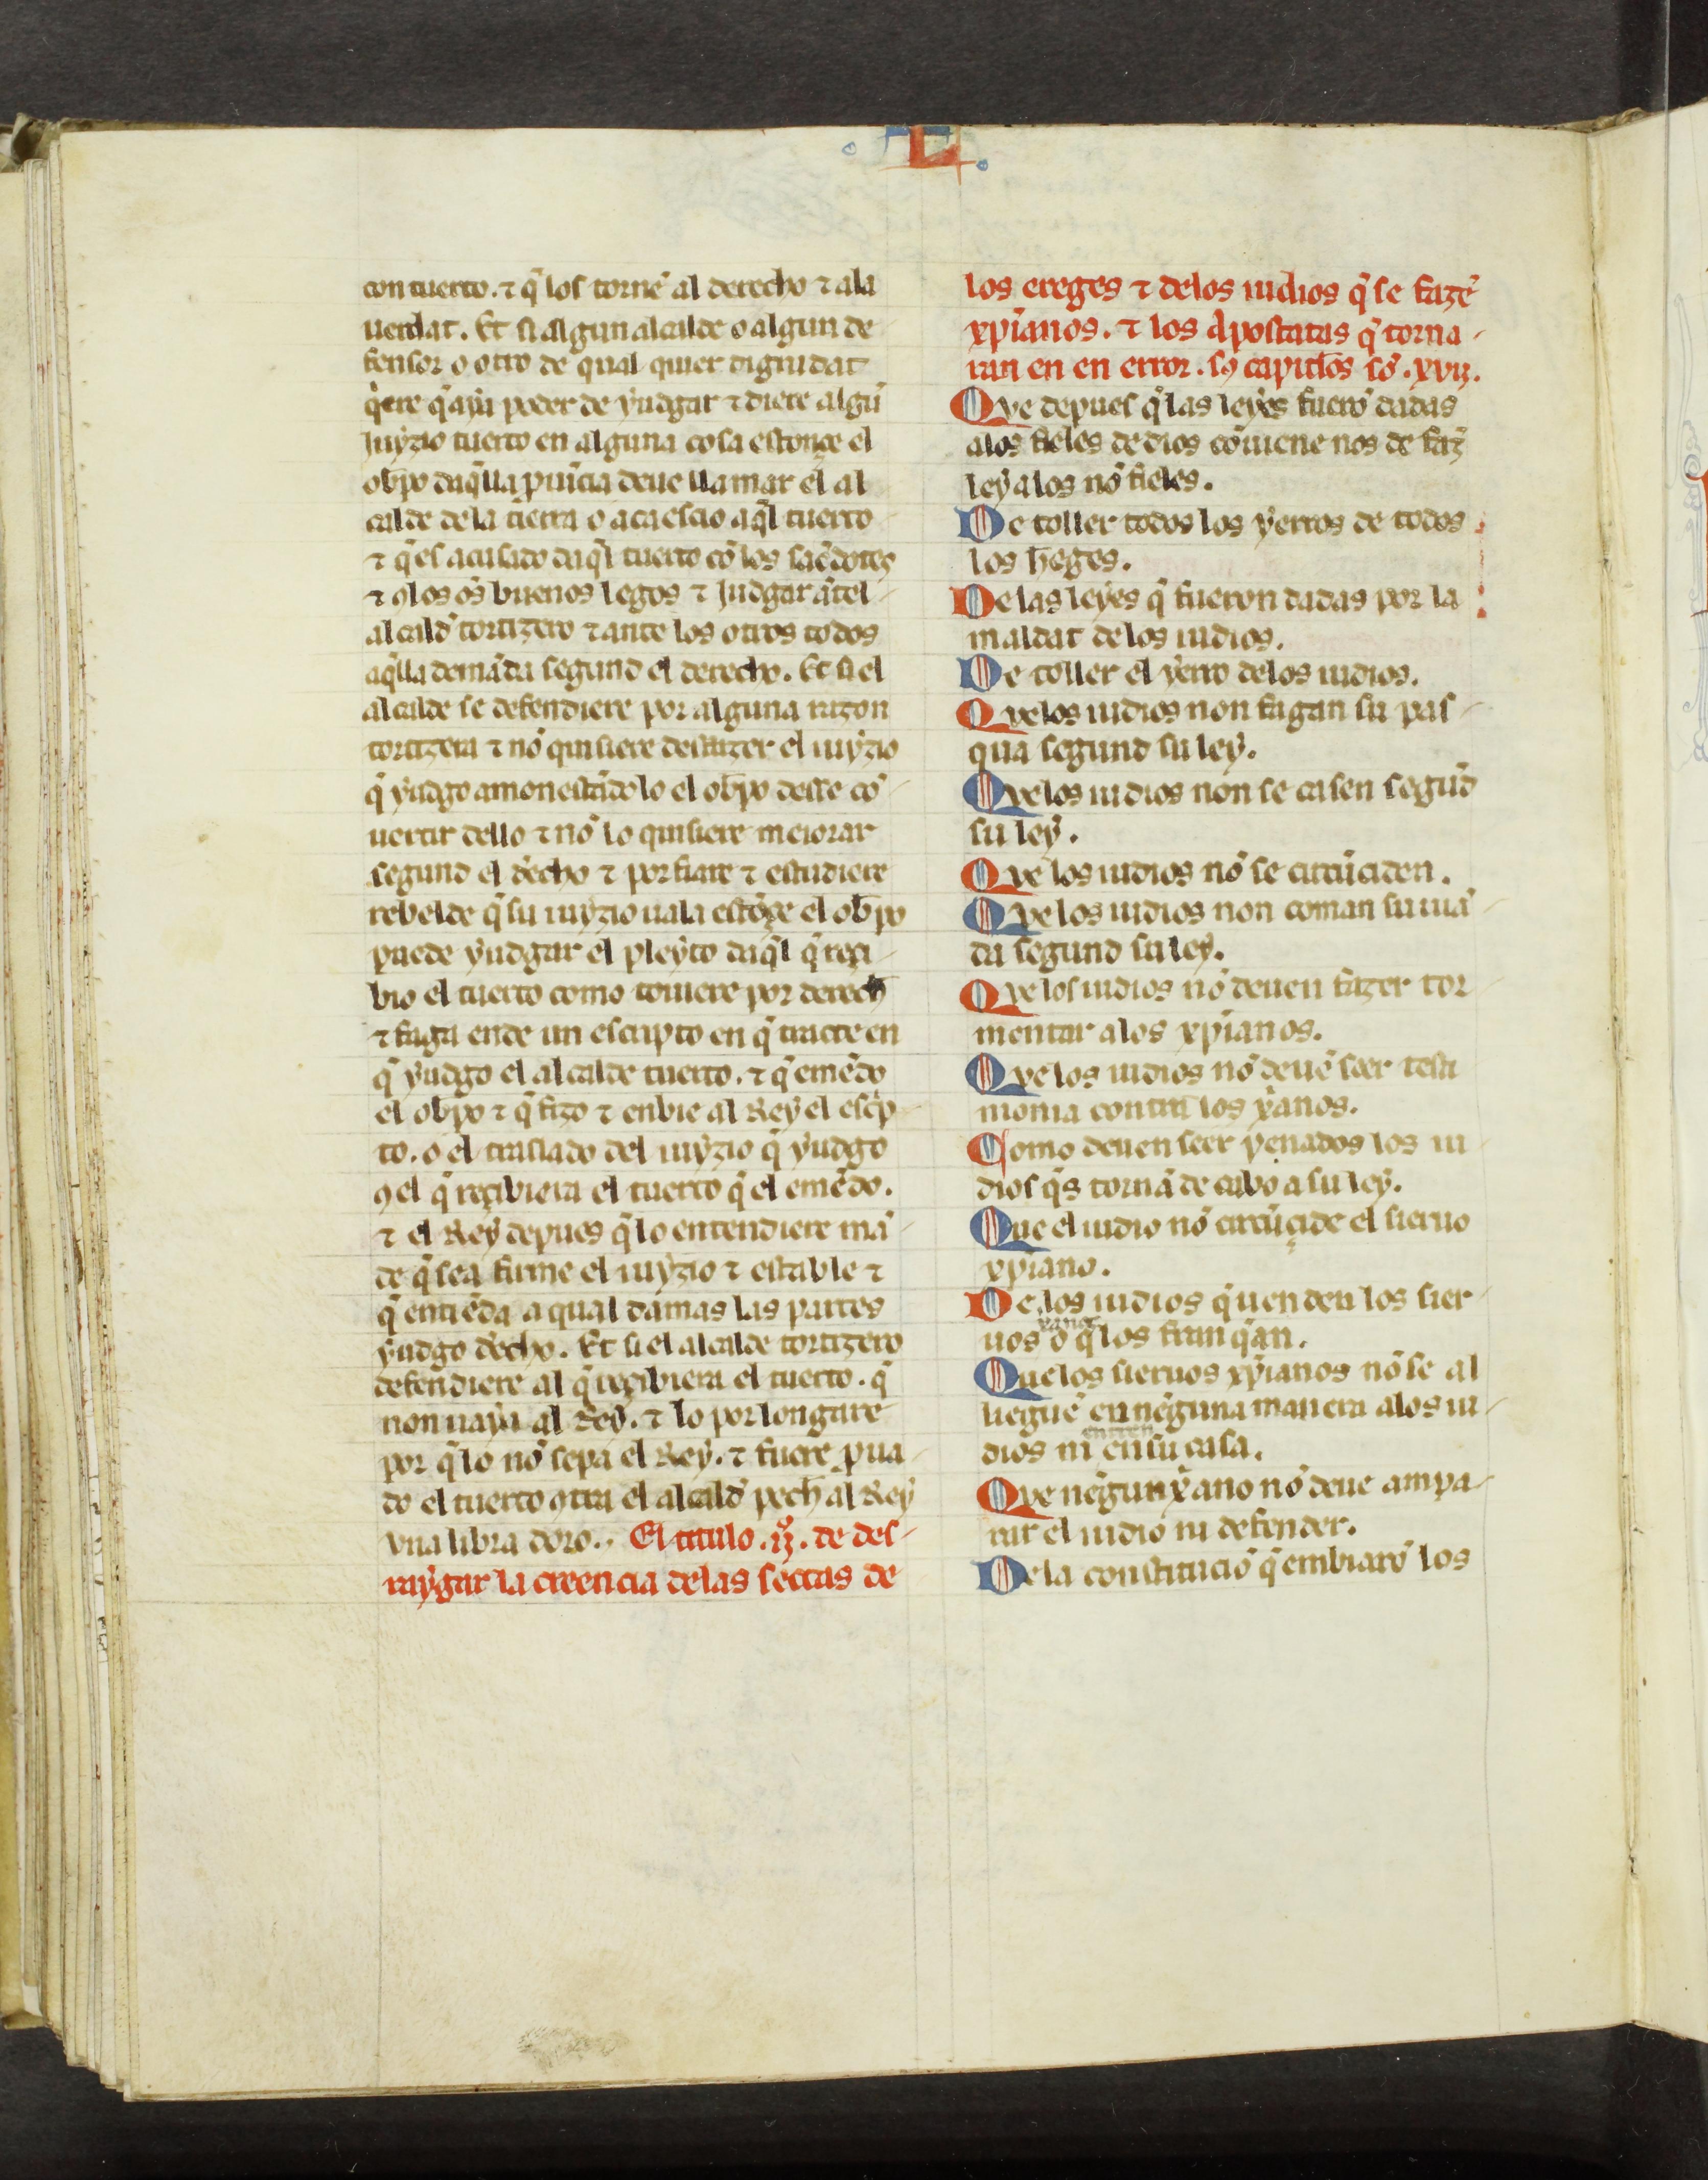 L
con tuerto. ⁊ q̃ los torne͂ al derecho ⁊ ala
uerdat. Et si algun alcalde o algun de
fensor o otro de qual quier dignidat
q̃ere q̃ aya poder de yudgar ⁊ diere algũ
Juyzio tuerto en alguna cosa estonçe el
ob̃po daq̃lla puĩcia deue llamar el al
calde de la tierra o acaescio aq̃l tuerto
⁊ q̃ es acusado daq̃l tuerto cõ los sac̃dotes
⁊ ꝯ los õs buenos legos ⁊ Judgar ãtel
alcald̃ tortizero ⁊ ante los otros todos
aq̃lla demãda segund el derecho. Et si el
alcalde se defendiere por alguna razon
tortizera ⁊ nõ quisiere desfazer el iuyzio
q̃ yudgo amonestãdolo el ob̃po desse cõ
uertir dello ⁊ nõ lo quisiere meiorar
segund el d̃echo ⁊ porfiare ⁊ estudiere
rebelde q̃ su iuyzio uala estõçe el ob̃po
puede yudgar el pleyto daq̃l q̃ reçi
bio el tuerto como touiere por derech̃
⁊ faga ende un escripto en q̃ tracte en
q̃ yudgo el alcalde tuerto. ⁊ q̃ emẽdo
el ob̃po ⁊ q̃ fizo ⁊ enbie al Rey el esc̃p
to. o el traslado del iuyzio q̃ yudgo
ꝯ el q̃ reçibiera el tuerto q̃ el emẽdo.
⁊ el Rey depues q̃ lo entendiere mã
de q̃ sea firme el iuyzio ⁊ estable ⁊
q̃ entiẽda a qual damas las partes
yudgo d̃echo. Et si el alcalde tortizero
defendiere al q̃ reçibiera el tuerto. q̃
non uaya al Rey. ⁊ lo porlongare
por q̃ lo nõ sepa el Rey. ⁊ fuere ꝓua
do el tuerto ꝯtra el alcald̃ pech̃ al Rey
vna libra doro. El titulo .ij. de des
raygar la creencia delas sectas de
los ereges ⁊ delos iudios q̃ se fazẽ
xp̃ianos. ⁊ los Apostatas q̃ torna
ran en en error. sꝯ capitl̃os sõ. xvij.
Qve depues q̃ las leyes fuerõ dadas
alos fieles de dios cõuiene nos de faz̃
ley alos nõ fieles.
De toller todos los yerros de todos
los h̃eges.
De las leyes q̃ fueron dadas por la
maldat de los iudios.
De toller el yerro delos iudios.
Qve los iudios non fagan su pas
qua segund su ley.
Qve los iudios non se casen segũd
su ley.
Qve los iudios nõ se circũciden.
Qve los iudios non coman su uiã
da segund su ley.
Qve los iudios nõ deuen fazer tor
mentar alos xp̃ianos.
Qve los iudios nõ deuẽ seer testi
monia contra los x̃anos.
Como deuen seer penados los iu
dios q̃s tornã de cabo a su ley.
Que el iudio nõ circũçide el sieruo
xp̃iano.
De los iudios q̃ uenden los sier
x̃anos
uos o q̃ los franq̃an.
Que los sieruos xp̃ianos nõ se al
lleguẽ en nẽguna manera alos iu
entren
dios ni en su casa.
Qve negun x̃ano nõ deue ampa
rar el iudio ni defender.
De la constituciõ q̃ embiarõ los